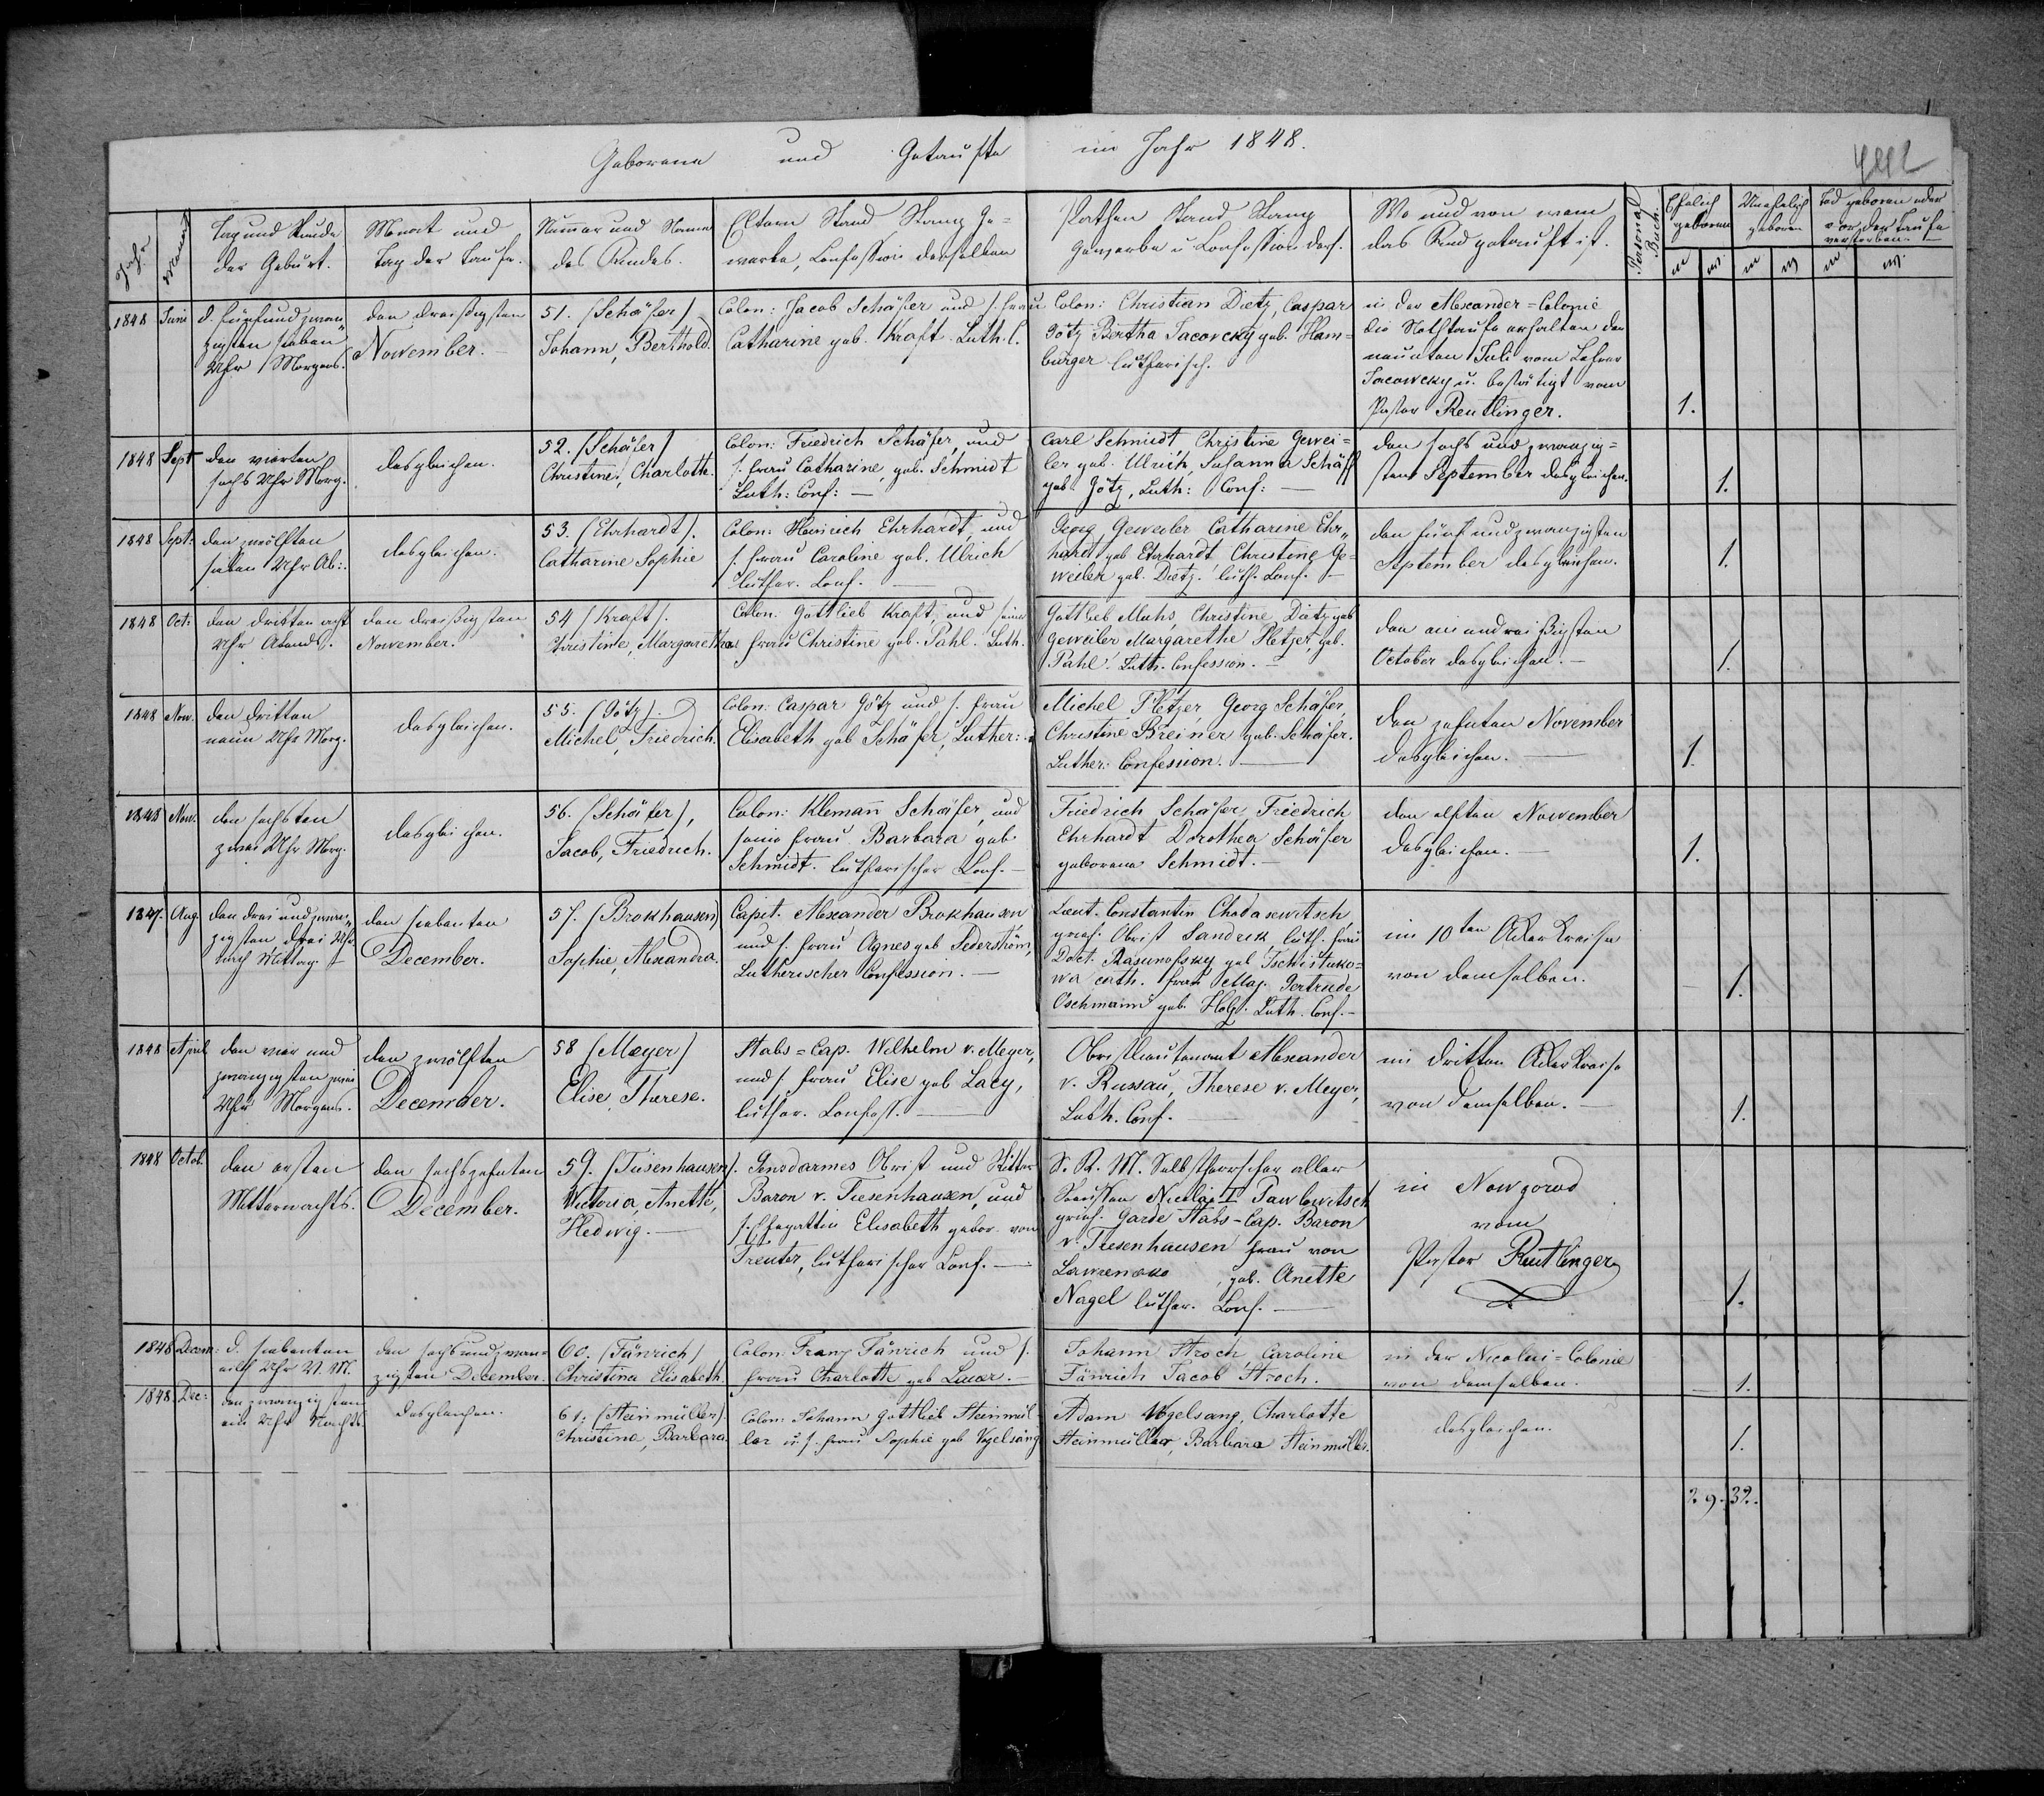 Geborene und Getaufte im Jahr 1848.
442
Jahr
Monat
Tag und Stunde
der Geburt.
Monat und
Tag der Taufe.
Nummer und Name
des Kindes.
Eltern Stand Rang Ge=
werbe, Confession derselben
Pathen Stand Rang
Gewerbe u Confession ders.
Wo und von wem
das Kind getauft ist.
Personal
Buch.
Ehelich
geboren
Unehelich
geboren
Tod geboren oder
vor der Taufe
verstorben.
m w. m w m w.
1848 Juni
d. fünfundzwan„
zigsten sieben
Uhr Morgens.
den dreißigsten
November.
51. (Schäfer)
Johann, Berthold.
Colon: Jacob Schäfer und s. Frau
Catharine geb. Kraft. Luth. C.
Colon: Christian Dietz, Caspar
Götz Bertha Jacovcky geb. Ham=
burger lutherisch.
in der Alexander=Colonie
die Nothtaufe erhalten den
neunten Juli vom Lehrer
Jacowcky u. bestätigt vom
Pastor Reutlinger.
1.
1848 Sept
den vierten
sechs Uhr Morg.
desgleichen.
52. (Schäfer)
Christine, Charlotte.
Colon: Friedrich Schäfer, und
s. Frau Catharine, geb. Schmidt
Luth: Conf: —
Carl Schmidt, Christine Gewei=
ler geb. Ulrich, Susanna Schäff
geb Götz, Luth: Conf: —
den sechs und zwanzig=
sten September desgleichen.
1.
1848 Sept:
den zwölften
sieben Uhr Ab:.
desgleichen.
53. (Ehrhardt).
Catharine Sophie
Colon: Heinrich Ehrhardt, und
s. Frau Caroline geb. Ulrich
luther. Conf. —
Georg Geweiler Catharine Ehr„
hardt geb Ehrhardt Christine Ge=
weiler geb. Dietz. luth. Conf. —
den fünf und zwanzigsten
September desgleichen.
1.
1848 Oct:
den dritten acht
Uhr Abends.
den dreißigsten
November.
54 (Kraft).
Christine, Margarethe
Colon: Gottlieb Kraft, und seine
Frau Christine geb. Pahl. Luth.
Gottlieb Muhs, Christine Dietz geb
Geweiler Margarethe Pletzer, geb.
Pahl. Luth. Confession. —
den ein und dreißigsten
October desgleichen. —
1.
1848 Nov.
den dritten
neun Uhr Morg.
desgleichen.
55. (Götz).
Michel, Friedrich.
Colon: Caspar Götz und s. Frau
Elisabeth geb Schäfer, Luther:
Michel Pletzer, Georg Schäfer,
Christine Breiner geb. Schäfer.
Luther: Confession. —
den zehnten November
desgleichen. —
1.
1848 Nov.
den sechsten
zwei Uhr Morg.
desgleichen.
56. (Schäfer),
Jacob, Friedrich.
Colon: Klemann Schäfer, und
seine Frau Barbara geb.
Schmidt. lutherischer Conf. —
Friedrich Schäfer, Friedrich
Ehrhardt Dorothea Schäfer
geborene Schmidt. —
den elften November
desgleichen. —
1.
1847. Aug.
den drei und zwan„
zigsten drei Uhr
nach Mittag. —
den siebenten
December.
57. (Brokhausen)
Sophie, Alexandra.
Capit. Alexander Brokhausen
und s. Frau Agnes geb Sederström,
Lutherischer Confession. —
Lieut. Constantin Chodasewitsch
grich. Obrist Sandrik, luth. Frau
Doct. Rasumofsky geb Tschistuko=
wa cath. Frau Maj. Gertrude
Oschmann geb. Holz. Luth. Conf. —
im 10ten Acker Kreise
von demselben.
1.
1848 April
den vier und
zwanzigsten zwei
Uhr Morgens.
den zwölften
December.
58 (Meyer)
Elise, Therese.
Stabs=Cap. Wilhelm v. Meyer,
und s. Frau Elise geb Lacy,
luther. Confess. —
Obristlieutenant Alexander
v. Russau, Therese v. Meyer,
Luth. Conf. —
im dritten Acker Kreise
von demselben. —
1.
1848 Octob.
den ersten
Mitternachts.
den sechszehnten
December.
59. (Tiesenhausen).
Victoria, Anette,
Hedwig. —
Gensdarmes Obrist und Ritter
Baron v. Tiesenhausen, und
s. Ehegattin Elisabeth gebor. von
Treuter, lutherischer Conf. —
S. K. M. Selbstherrscher aller
Reussen Nicolai I Pawlowitsch
grich. Garde Stabs-Cap. Baron
v. Tiesenhausen Frau von
geb. Anette
Nagel luther. Conf. —
in Nowgorod
vom
Pastor Reutlinger
1.
1848 Decem:
d. siebenten
elf Uhr V. M.
den sechs und zwan=
zigsten December.
60. (Fänrich)
Christina Elisabeth.
Colon: Franz Fänrich und s.
Frau Charlotte geb Lucor. —
Johann Stroch Caroline
Fänrich Jacob Stroch.
in der Nicolai=Colonie
von demselben.
1.
1848 Dec:
den zwanzigsten
ein Uhr Nachts
desgleichen.
61. (Steinmüller).
Christina, Barbara.
Colon: Johann Gottlieb Steinmül=
ler u. s. Frau Sophie geb Vogelsang
Adam Vogelsang, Charlotte
Steinmüller, Barbara Steinmüller.
desgleichen.
1.
29. 32.